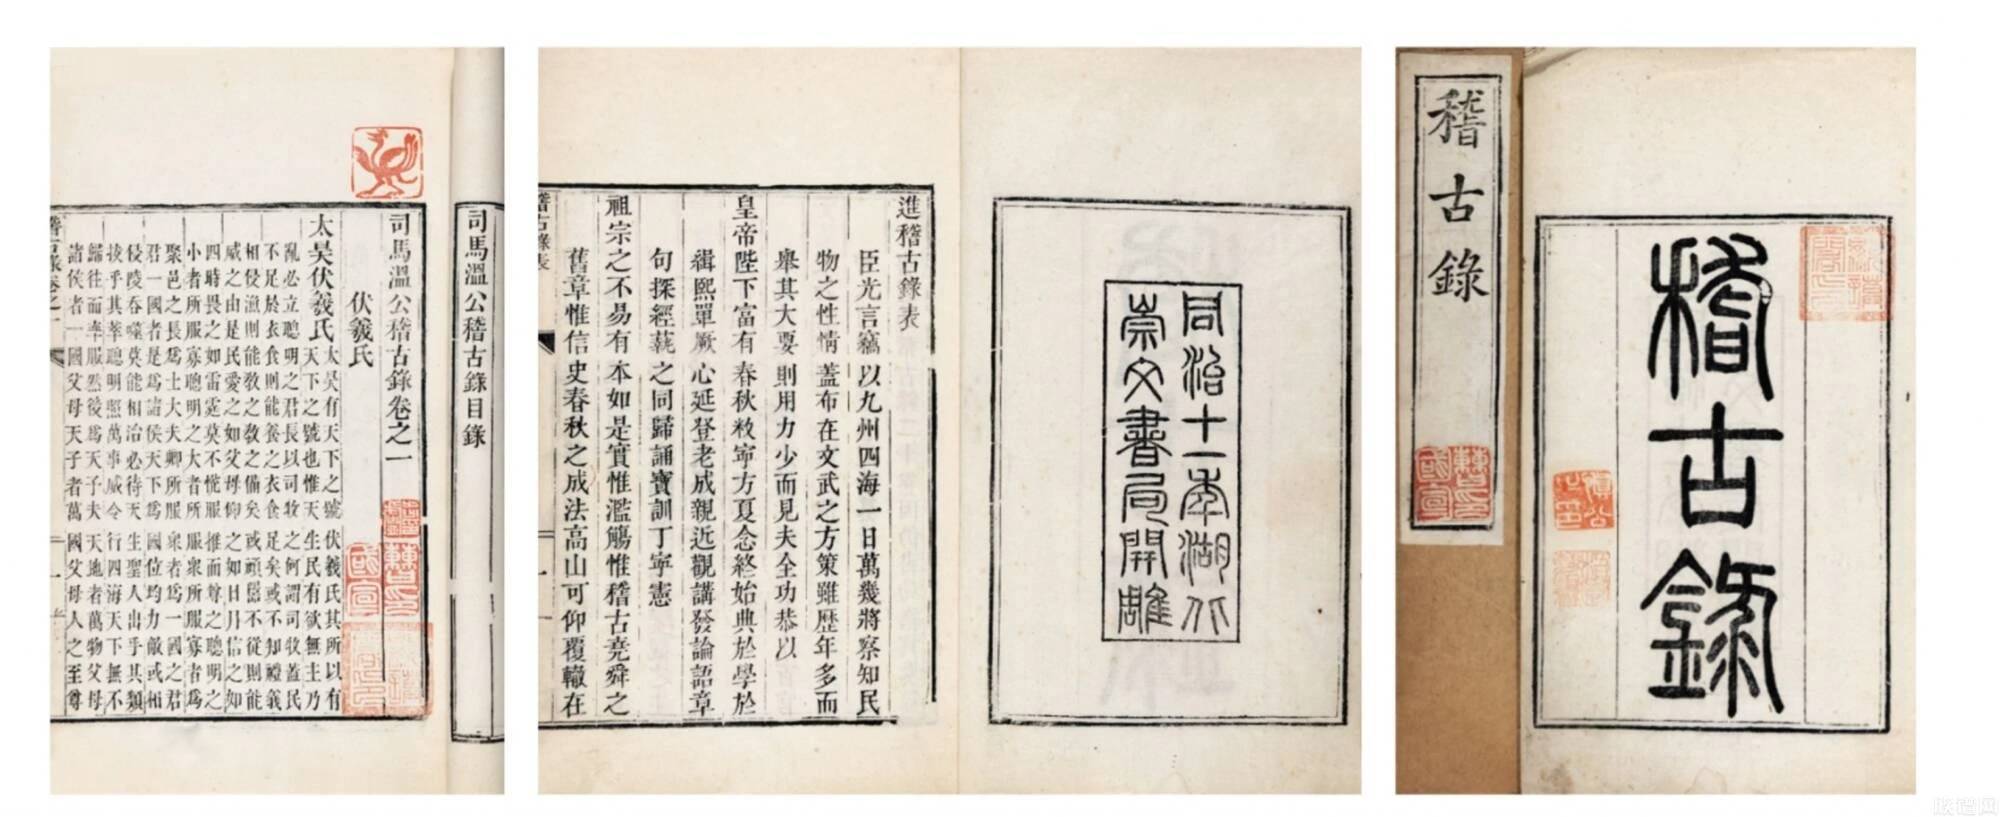 稽古錄
稽古錄
同治十一年湖北
崇文書局開雕
進稽古錄表
臣光言竊以九州四海一日萬幾將察知民
物之性情蓋布在文武之方策雖歷年多而
舉其大要則用力少而見夫全功恭以
皇帝陛下富有春秋敉寧方夏念終始典於學於
緝熙單厥心延登老成親近觀講發論語章
句探經蓺之同歸誦寶訓丁寧憲
祖宗之不易有本如是實惟濫觴惟稽古堯舜之
舊章惟信史春秋之成法高山可仰覆轍在
稽古錄表
司馬溫公稽古錄目錄
司馬溫公稽古錄卷之一
伏羲氏
太昊伏羲氏
太昊有天下之號伏羲氏其所以有
天下之號也惟天生民有欲無主乃
亂必立聰明之君長以司牧之何謂司牧蓋民
不足於衣食則能養之衣食足矣或不知禮義
相侵漁則能敎之敎之備矣或頑嚚不從則能
威之由是民愛之如父母仰之如日月信之如
四時畏之如雷霆莫不慌服推而尊之聰明之
小者所服寡聰明之大者所服衆所服寡者爲
聚邑之長爲士大夫卿所服衆者爲一國之君
君一國者是爲諸侯天下爲國位均力敵或相
侵陵吞噬莫能相治必待天生聖人出乎其類
拔乎其萃聰明照萬事威令行四海天下無不
歸往而率服然後爲天子夫天地者萬物父母
諸侯者一國父母天子者萬國父母人之至尊
稽古錄卷之一